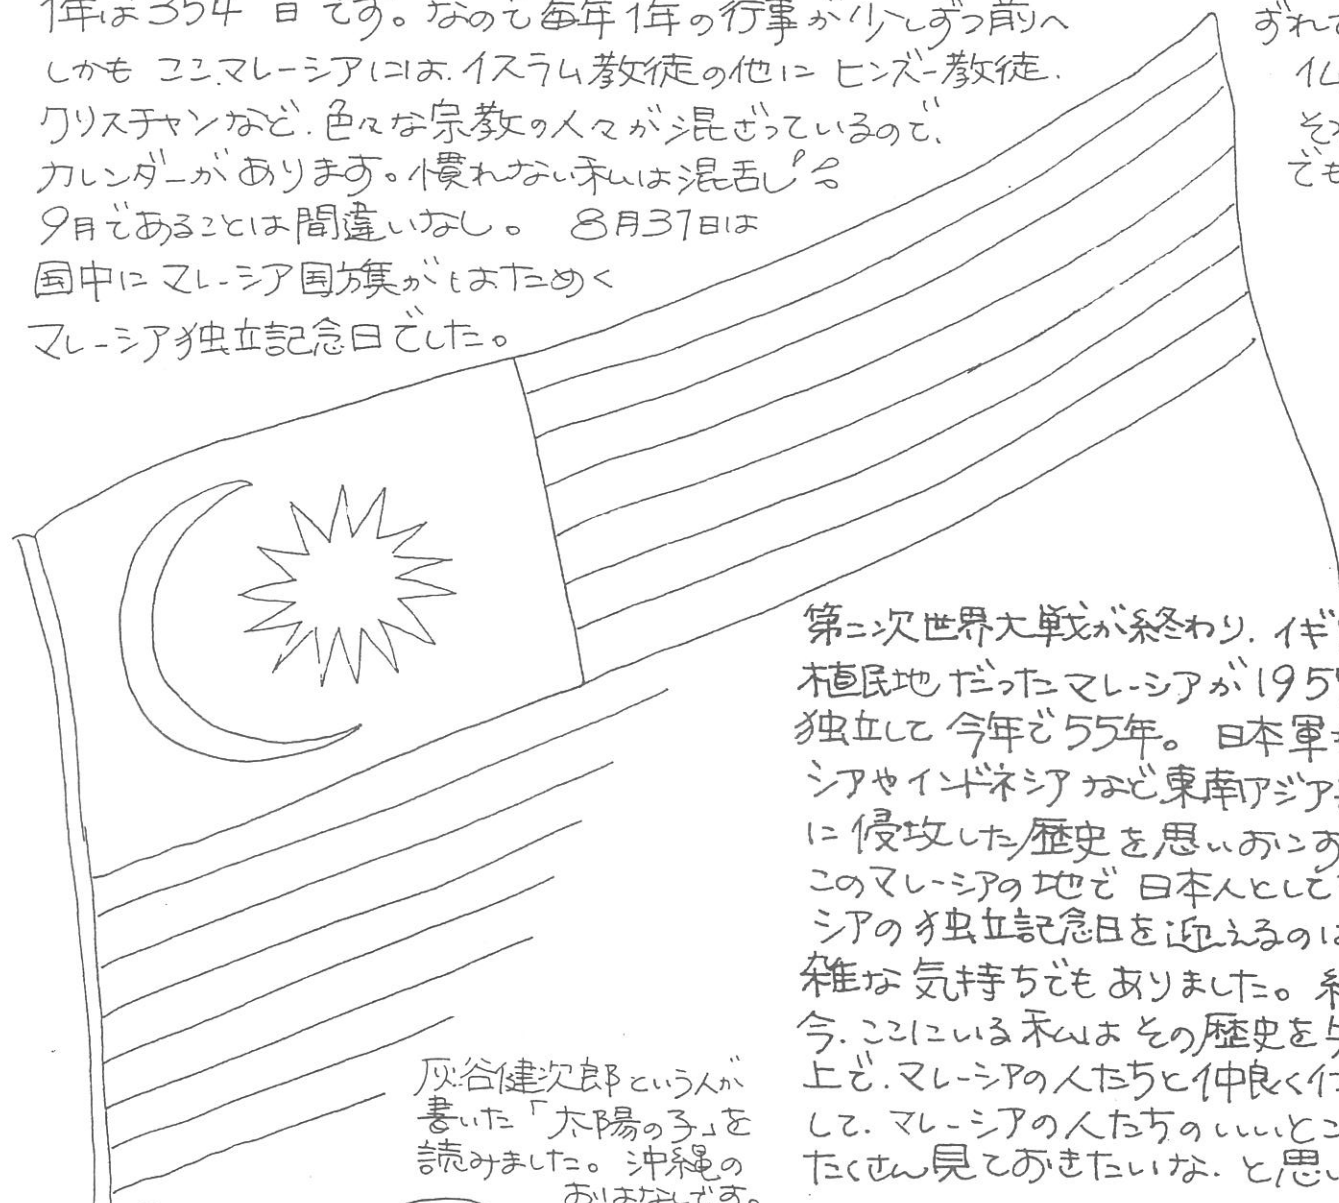 1年は354日です。なので毎年1年の行事が少しずつ前へ
ずれて
しかも ここ、マレーシアには、イスラム教徒の他に ヒンズー教徒、
仏
クリスチャンなど、色々な宗教の人々が混ざっているので、
そ
カレンダーがあります。慣れない私は混乱し
でも
9月であることは間違いなし。 8月31日は
国中に マレーシア国旗がはためく
マレーシア独立記念日でした。
第二次世界大戦が終わり、イギ
植民地だったマレーシアが195
独立して 今年で55年。 日本軍
シアやインドネシアなど東南アジア
に侵攻した歴史を思いおこす
このマレーシアの地で 日本人として
シアの独立記念日を迎えるのは
雑な気持ちでもありました。
今、ここにいる私は その歴史を
上で、マレーシアの人たちと仲良く付
して、マレーシアの人たちのいいとこ
たくさん見ておきたいな、と思い
灰谷健次郎という人が
書いた「太陽の子」を
読みました。 沖縄の
おはなしです。